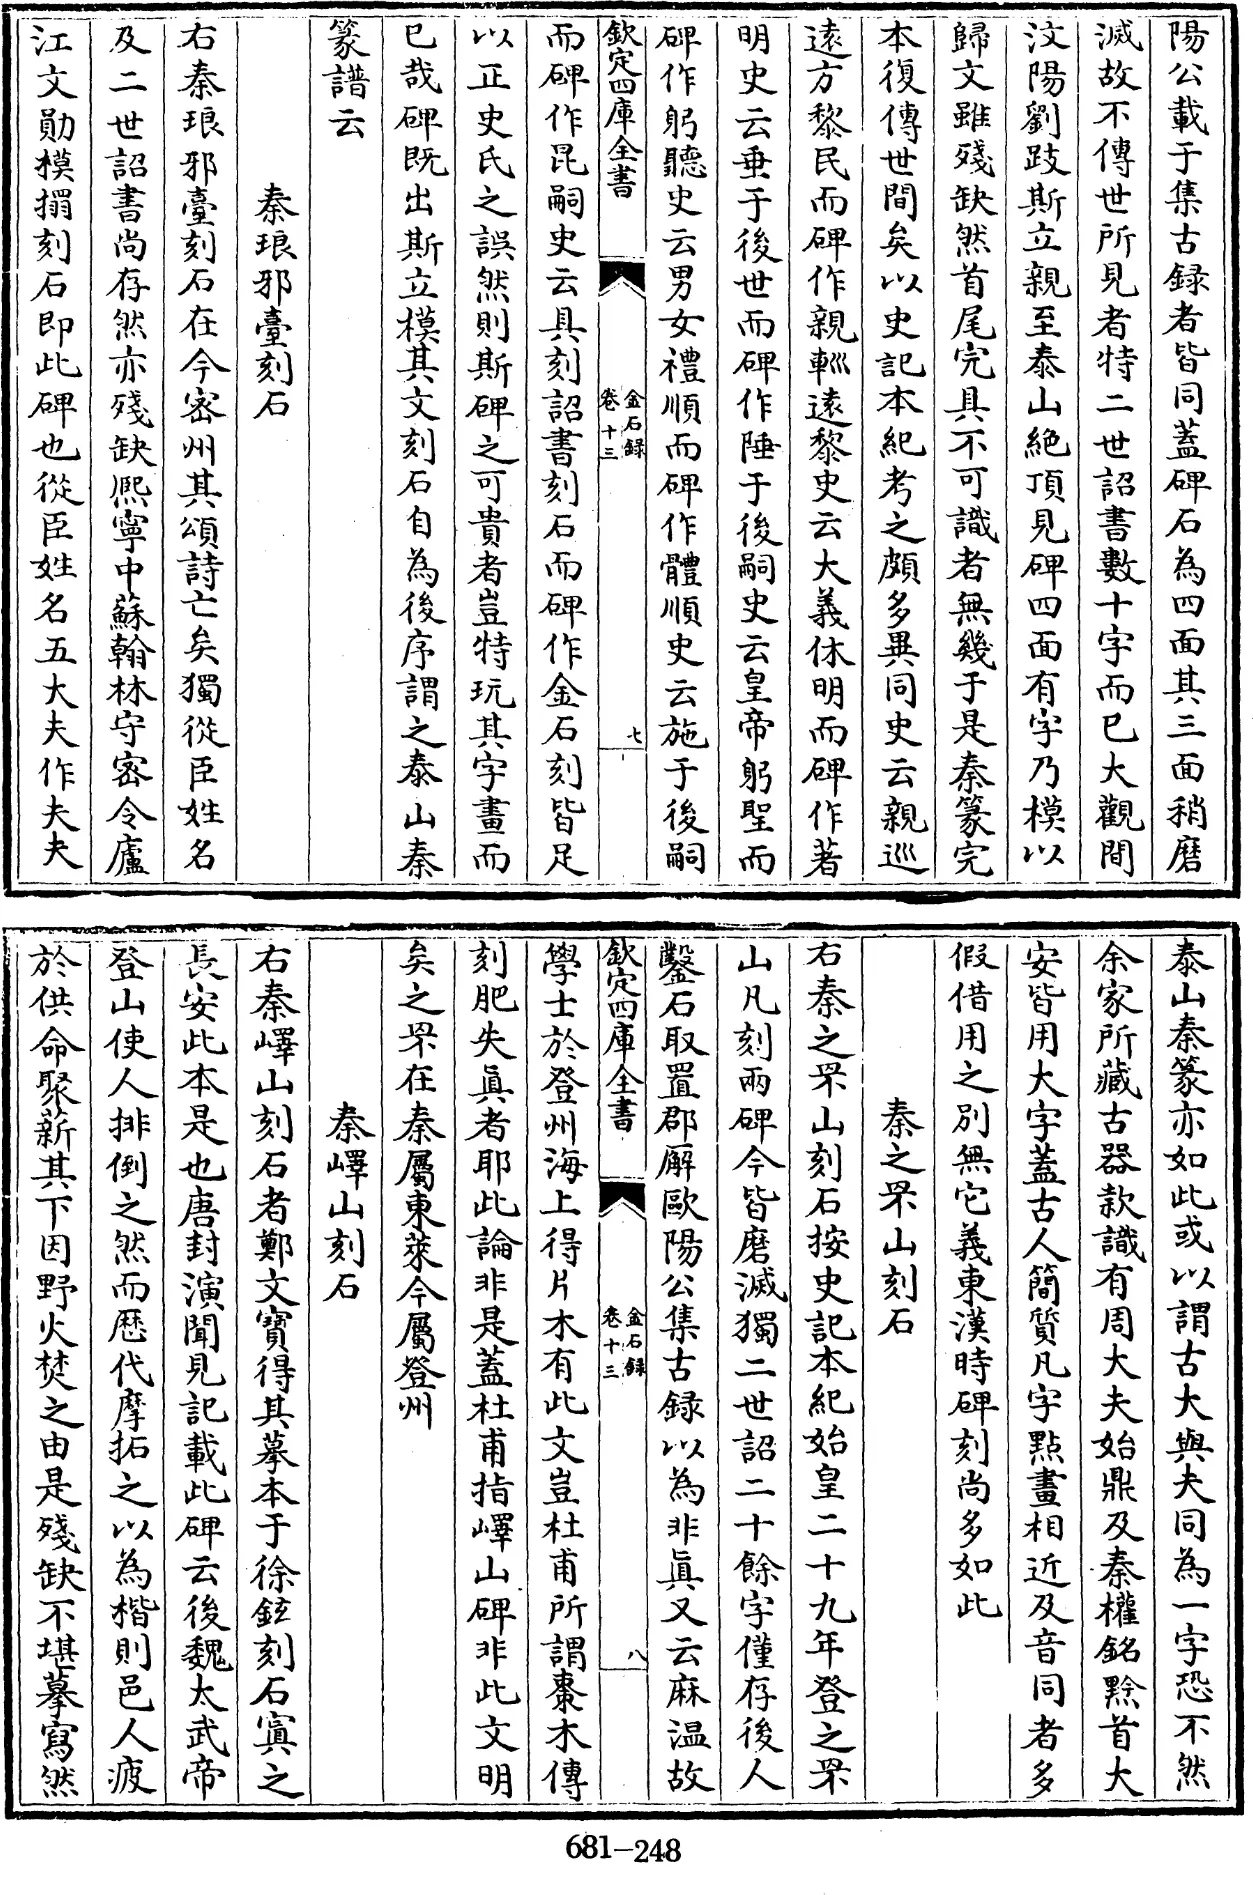 陽公載于集古録者皆同蓋碑石為四面其三面稍磨
滅故不傳世所見者特二世詔書數十字而已大觀間
汶陽劉跂斯立親至泰山絶頂見碑四面有字乃模以
歸文雖殘缺然首尾完具不可識者無幾于是秦篆完
本復傳世間矣以史記本紀考之頗多異同史云親巡
遠方黎民而碑作親𨊠遠黎史云大義休明而碑作著
明史云垂于後世而碑作陲于後嗣史云皇帝躬聖而
碑作躬聽史云男女禮順而碑作體順史云施于後嗣
欽定四庫全書
金石録
卷十三
七
而碑作昆嗣史云具刻詔書刻石而碑作金石刻皆足
以正史氏之誤然則斯碑之可貴者豈特玩其字畫而
已哉碑既出斯立模其文刻石自為後序謂之泰山秦
篆譜云
秦琅邪臺刻石
右秦琅邪臺刻石在今密州其頌詩亡矣獨從臣姓名
及二世詔書尚存然亦殘缺熈寧中蘇翰林守密令廬
江文勛模搨刻石即此碑也從臣姓名五大夫作夫夫
泰山秦篆亦如此或以謂古大與夫同為一字恐不然
余家所藏古器款識有周大夫始鼎及秦權銘黔首大
安皆用大字蓋古人簡質凡字點畫相近及音同者多
假借用之別無它義東漢時碑刻尚多如此
秦之罘山刻石
右秦之罘山刻石按史記本紀始皇二十九年登之罘
山凡刻兩碑今皆磨滅獨二世詔二十餘字僅存後人
鑿石取置郡廨歐陽公集古録以為非眞又云麻温故
欽定四庫全書
金石録
卷十三
八
學士於登州海上得片木有此文豈杜甫所謂棗木傳
刻肥失眞者耶此論非是蓋杜甫指嶧山碑非此文明
矣之罘在秦屬東萊今屬登州
秦嶧山刻石
右秦嶧山刻石者鄭文寳得其摹本于徐鉉刻石寘之
長安此本是也唐封演聞見記載此碑云後魏太武帝
登山使人排倒之然而歴代摩拓之以為楷則邑人疲
於供命聚薪其下因野火焚之由是殘缺不堪摹寫然
681-248